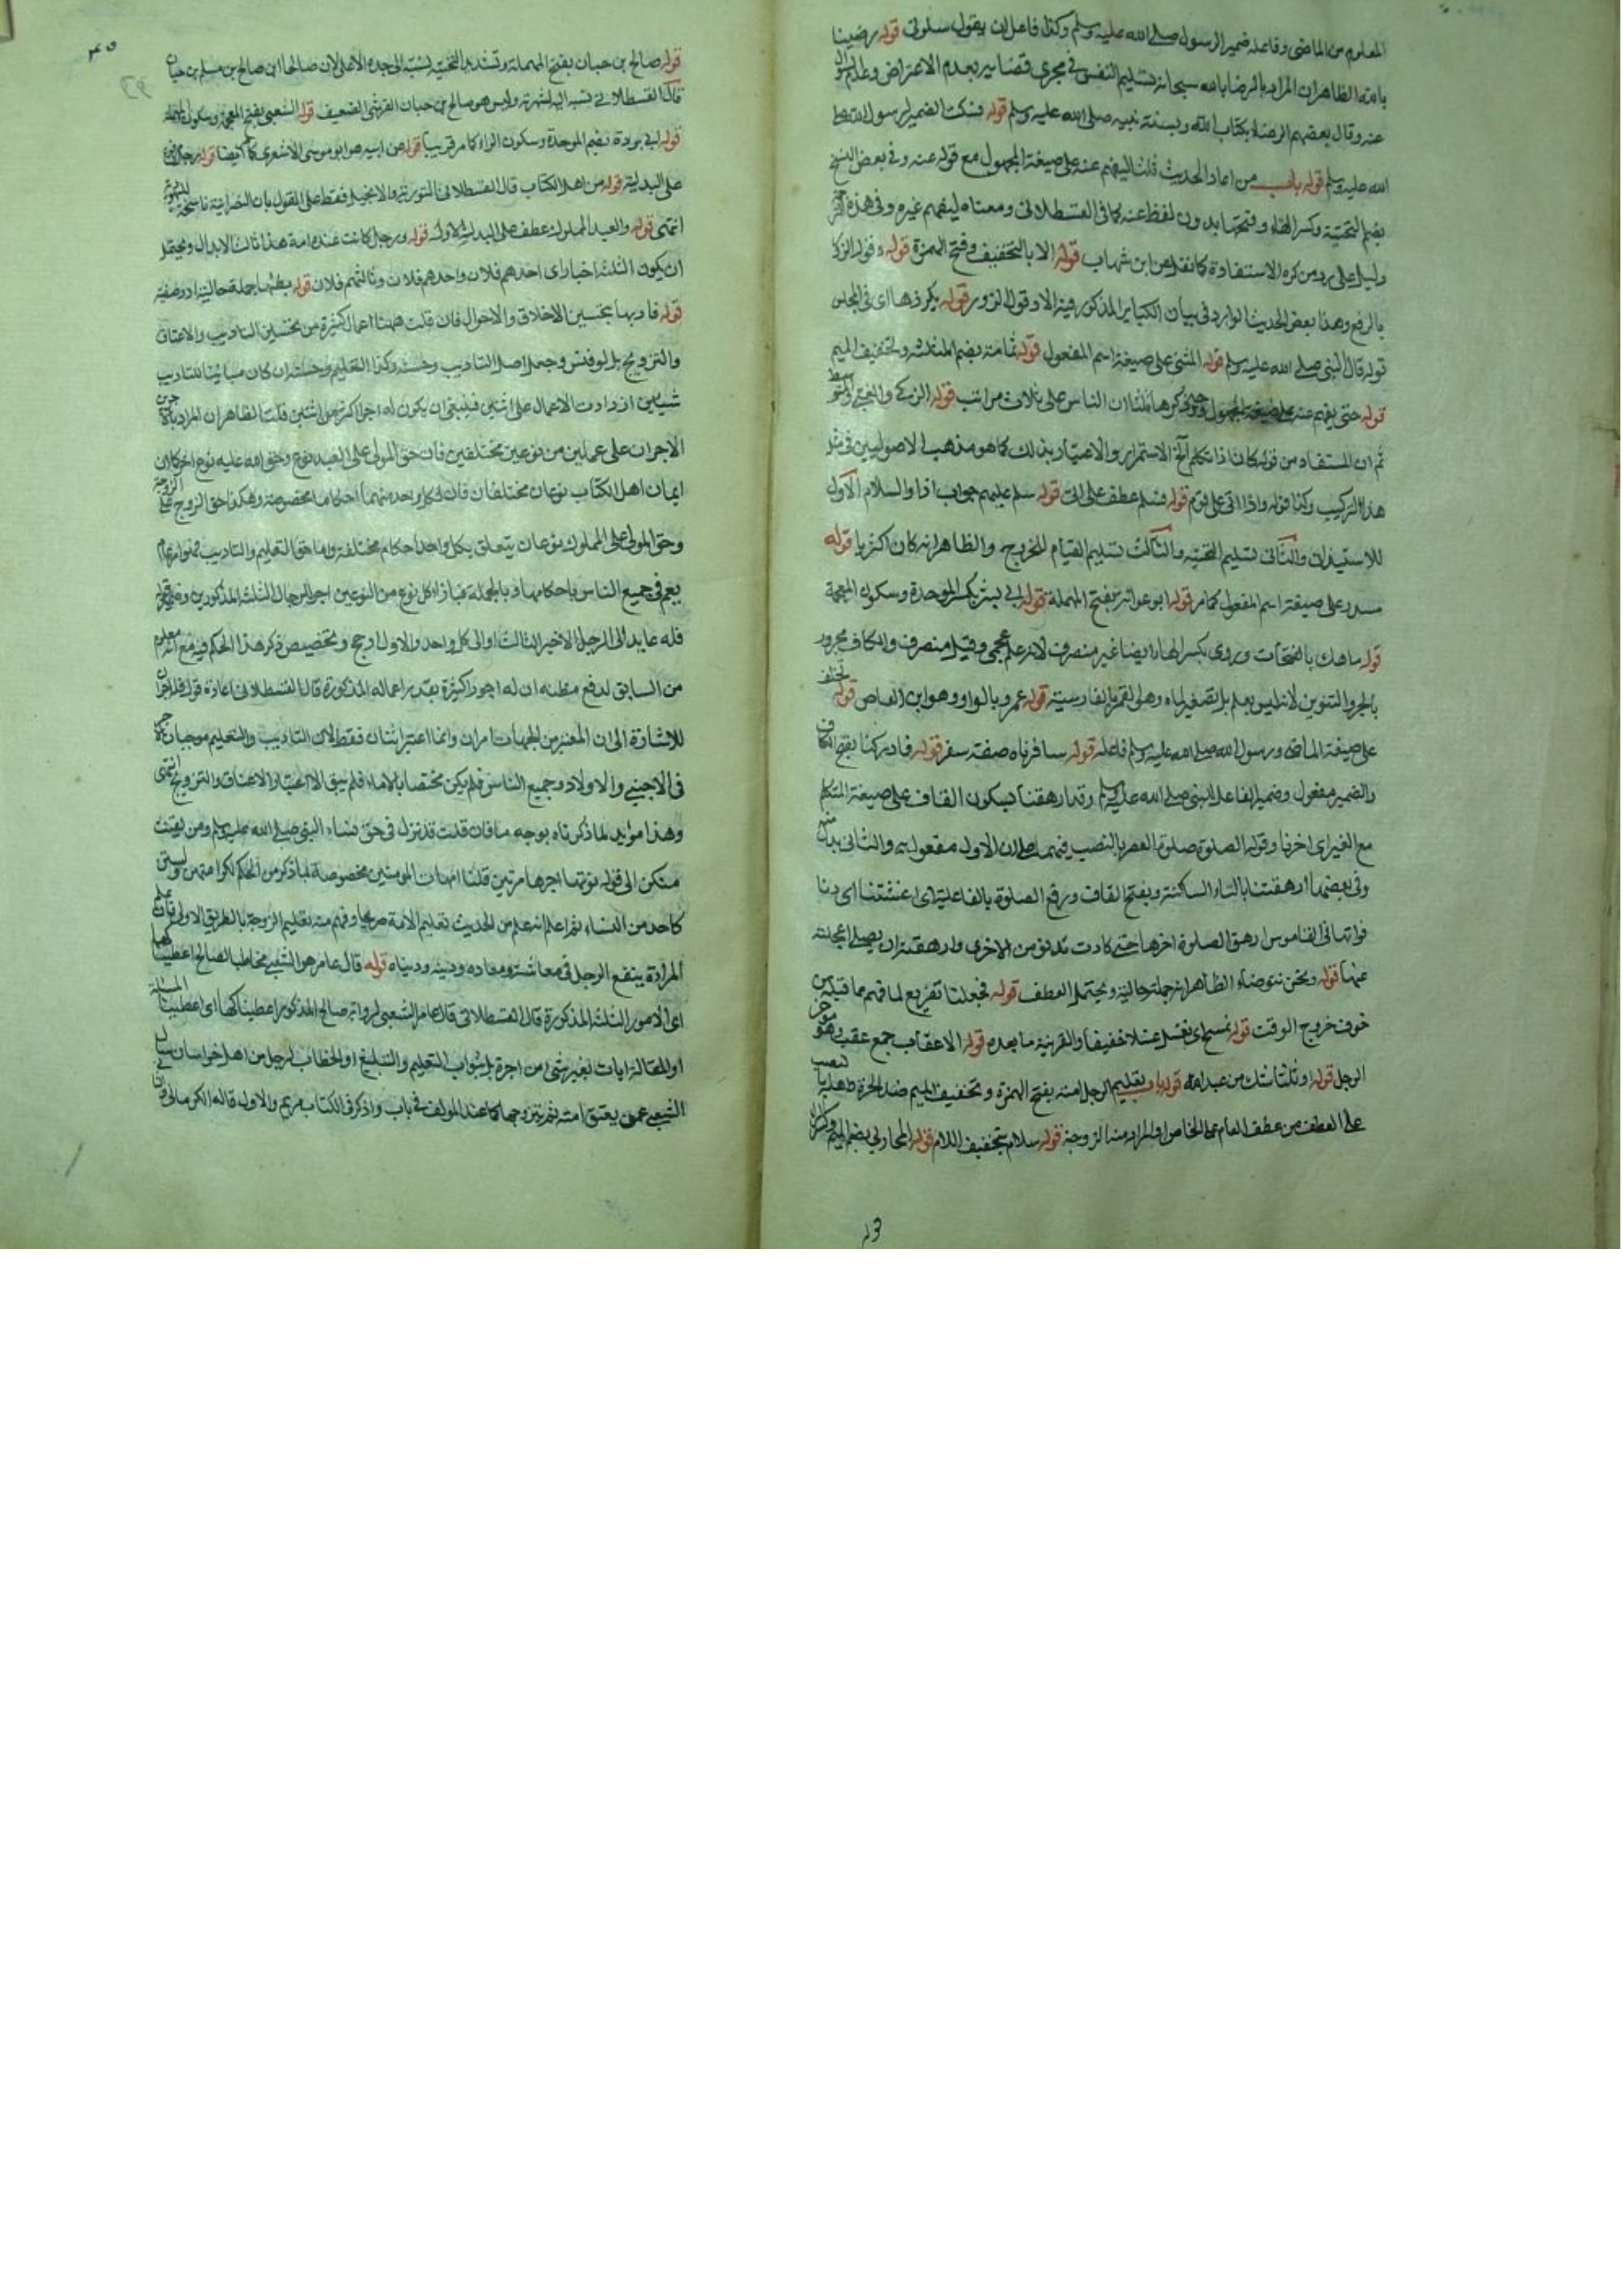 المعلوم من الماضي وفاعله ضمير الرسول صلى الله عليه وسلم وكذا فاعل ان يقول سلوني قوله رضينا
بالله الظاهر ان المراد بالرضا بالله سبحانه تسليم النفس في مجرى قضايه بعدم الاعتراض
عنه وقال بعضهم الرضا بكتاب الله وبسنة نبيه صلى الله عليه وسلم قوله فسكت الضمير لرسول الله صلى
الله عليه وسلم قوله باب من اعاد الحديث ثلثا ليفهم عنه على صيغة المجهول مع قوله عنه وفي بعض النسخ
بضم التحتية وكسر الهاء وفتحها بدون لفظ عنه كما في القسطلاني ومعناه ليفهم غيره وفي هذه
دليل على رد من كره الاستفادة كما نقل عن ابن شهاب قوله الا بالتخفيف وفتح الهمزة قوله وقول الزور
بالرفع وهذا بعض الحديث الوارد في بيان الكباير المذكور فيه الا وقول الزور قوله يكررها اي في المجلس
قوله قال النبي صلى الله عليه وسلم قوله المثنى على صيغة اسم المفعول قوله ثمامة بضم المثلثة وتخفيف الميم
قوله حتى يفهم عنه على صيغة المجهول ثلثا ان الناس على ثلاث مراتب قوله الزكي والغبي والمتوسط
ثم ان المستفاد من قوله كان اذا تكلم الخ الاستمرار والاعتياد بذلك كما هو مذهب الاصوليين في مثل
هذا التركيب وكذا قوله واذا اتى على قوم قوله فسلم عطف على اتى قوله سلم عليهم جواب اذا والسلام الاول
للاستيذان والثاني تسليم التحية والثالث تسليم القيام للخروج والظاهر انه كان اكثريا قوله
مسدد على صيغة اسم المفعول كما مر قوله ابو عوانة بفتح المهملة قوله ابي بشر بكسر الموحدة وسكون المعجمة
قوله ماهك بالفتحات وروى بكسر الهاء ايضا غير منصرف لانه علم عجمي وقيل منصرف والكاف مجرور
بالجر والتنوين لانه ليس بعلم بل تصغير ماه وهو القمر بالفارسية قوله عمرو بالواو وهو ابن العاص قوله تخلف
على صيغة الماضي ورسول الله صلى الله عليه وسلم فاعله قوله سافرناه صفة سفر قوله فادركنا بفتح الكاف
والضمير مفعول وضمير الفاعل للنبي صلى الله عليه وسلم وقد ارهقنا بسكون القاف على صيغة المتكلم
مع الغير اي اخرنا وقوله الصلوة صلوة العصر بالنصب فيهما على ان الاول مفعول به والثاني بدل منه
وفي بعضها ارهقتنا بالتاء الساكنة وبفتح القاف ورفع الصلوة بالفاعلية اي غشتنا اي دنا
فواتها في القاموس ارهق الصلوة اخرها حتى كادت تدنو من الاخرى وارهقته ان يصلي اعجلته
عنها قوله ونحن نتوضاء الظاهر انه جملة حالية ويحتمل العطف قوله فجعلنا تفريع لما فهم مما قبله من
خوف خروج الوقت قوله نمسح اي نغسل غسلا خفيفا والقرينة ما بعده قوله الاعقاب جمع عقب وهو مؤخر
الرجل قوله او ثلثا شك من عبد الله قوله باب تعليم الرجل امته بفتح الهمزة وتخفيف الميم ضد الحرة
على العطف من عطف العام على الخاص او المراد منه الزوجة قوله سلام بتخفيف اللام قوله المحاربي بضم الميم وكسر
قوله صالح بن حيان بفتح المهملة وتشديد التحتية نسبة الى جده الاعلى لان صالحا ابن صالح بن مسلم بن حيان
قال القسطلاني نسبه اليه لشهرته وليس هو صالح بن حيان القرشي الضعيف قوله الشعبي بفتح المعجمة وسكون المهملة
قوله ابي بردة بضم الموحدة وسكون الراء كما مر قريبا قوله عن ابيه هو ابو موسى الاشعري كما مر ايضا قوله رجل
على البدلية قوله من اهل الكتاب قال القسطلاني التورية والانجيل او الانجيل فقط على القول بان النصرانية ناسخة لليهودية
انتهى قوله والعبد المملوك عطف على البدل الاول قوله ورجل كانت عنده امة هذا ثالث الابدال ويحتمل
ان يكون الثلثة اخبارا اي احدهم فلان واحدهم فلان وثالثهم فلان قوله يطئها جملة حالية او وصفية
قوله فادبها بتحسين الاخلاق والاحوال فان قلت ههنا اعمال كثيرة من تحسين التاديب والاعتاق
والتزويج بل لو فتش وجعل اصل التاديب وحسنه وكذا التعليم وحسنه ان كان مباينا للتاديب
شيئين ازدادت الاعمال على اثنين فينبغي ان يكون له اجرا اكثر من اثنين قلت الظاهر ان المراد بالاجرين
الاجران على عملين من نوعين مختلفين فان حق المولى على العبد نوع وحق الله عليه نوع اخر كما ان
ايمان اهل الكتاب نوعان مختلفان فان لكل واحد منهما احكاما مخصوصة وهكذا حق الزوج على الزوجة
وحق المولى على المملوك نوعان يتعلق بكل واحد احكام مختلفة واما حق التعليم والتاديب فهو امر عام
يعم في جميع الناس باحكامها وبالجملة فبازاء كل نوع من النوعين اجر للرجال الثلثة المذكورين
فله عايد الى الرجل الاخير الثالث او الى كل واحد والاول اوجه وتخصيص ذكر هذا الحكم فيه مع انه معلوم
من السابق لدفع مظنة ان له اجورا كثيرة بقدر اعماله المذكورة قال القسطلاني اعادة قوله فله اجران
للاشارة الى ان المعتبر من الجهات امران وانما اعتبر اثنان فقط لان التاديب والتعليم موجبان للاجر
في الاجنبي والاولاد وجميع الناس فلم يكن مختصا بالاماء فلم يبق الا اعتبار الاعتاق والتزويج انتهى
وهذا مؤيد لما ذكرناه بوجه ما فان قلت قد نزل في حق نساء النبي صلى الله عليه وسلم ومن يقنت
منكن الى قوله نؤتها اجرها مرتين قلنا امهات المومنين مخصوصة بما ذكر من الحكم لكرامتهن ولستن
كاحد من النساء ثم اعلم انه علم من الحديث تعليم الامة صريحا وفهم منه تعليم الزوجة بالطريق الاولى فان علم
المراة ينفع الرجل في معاشه ومعاده ودينه ودنياه قوله قال عامر هو الشعبي مخاطبا لصالح اعطيناكها
اي الامور الثلثة المذكورة قال القسطلاني قال عامر الشعبي لراويه صالح المذكور اعطيناكها اي اعطيناك المسئلة
او المقالة اياك بغير شئ من اجرة بل بثواب التعليم والتبليغ او الخطاب لرجل من اهل خراسان سال
الشعبي عمن يعتق امته ثم يتزوجها كما عند المولف في باب واذكر في الكتاب مريم والاول قاله الكرماني